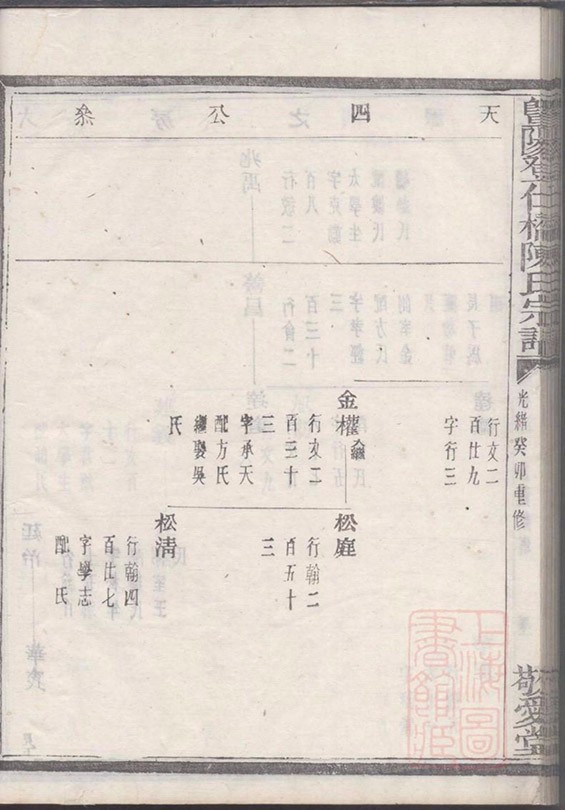 暨陽登仕橋陳氏宗譜
光緒癸卯重修
敬愛堂
天四公叅
行文二
百廿九
字行三
金權
繼
行文二
百三十
三
字承天
配方氏
繼娶吳
氏
松庭
行翰二
百五十
三
松清
行翰四
百廿七
字學志
配 氏
上海圖
書館藏